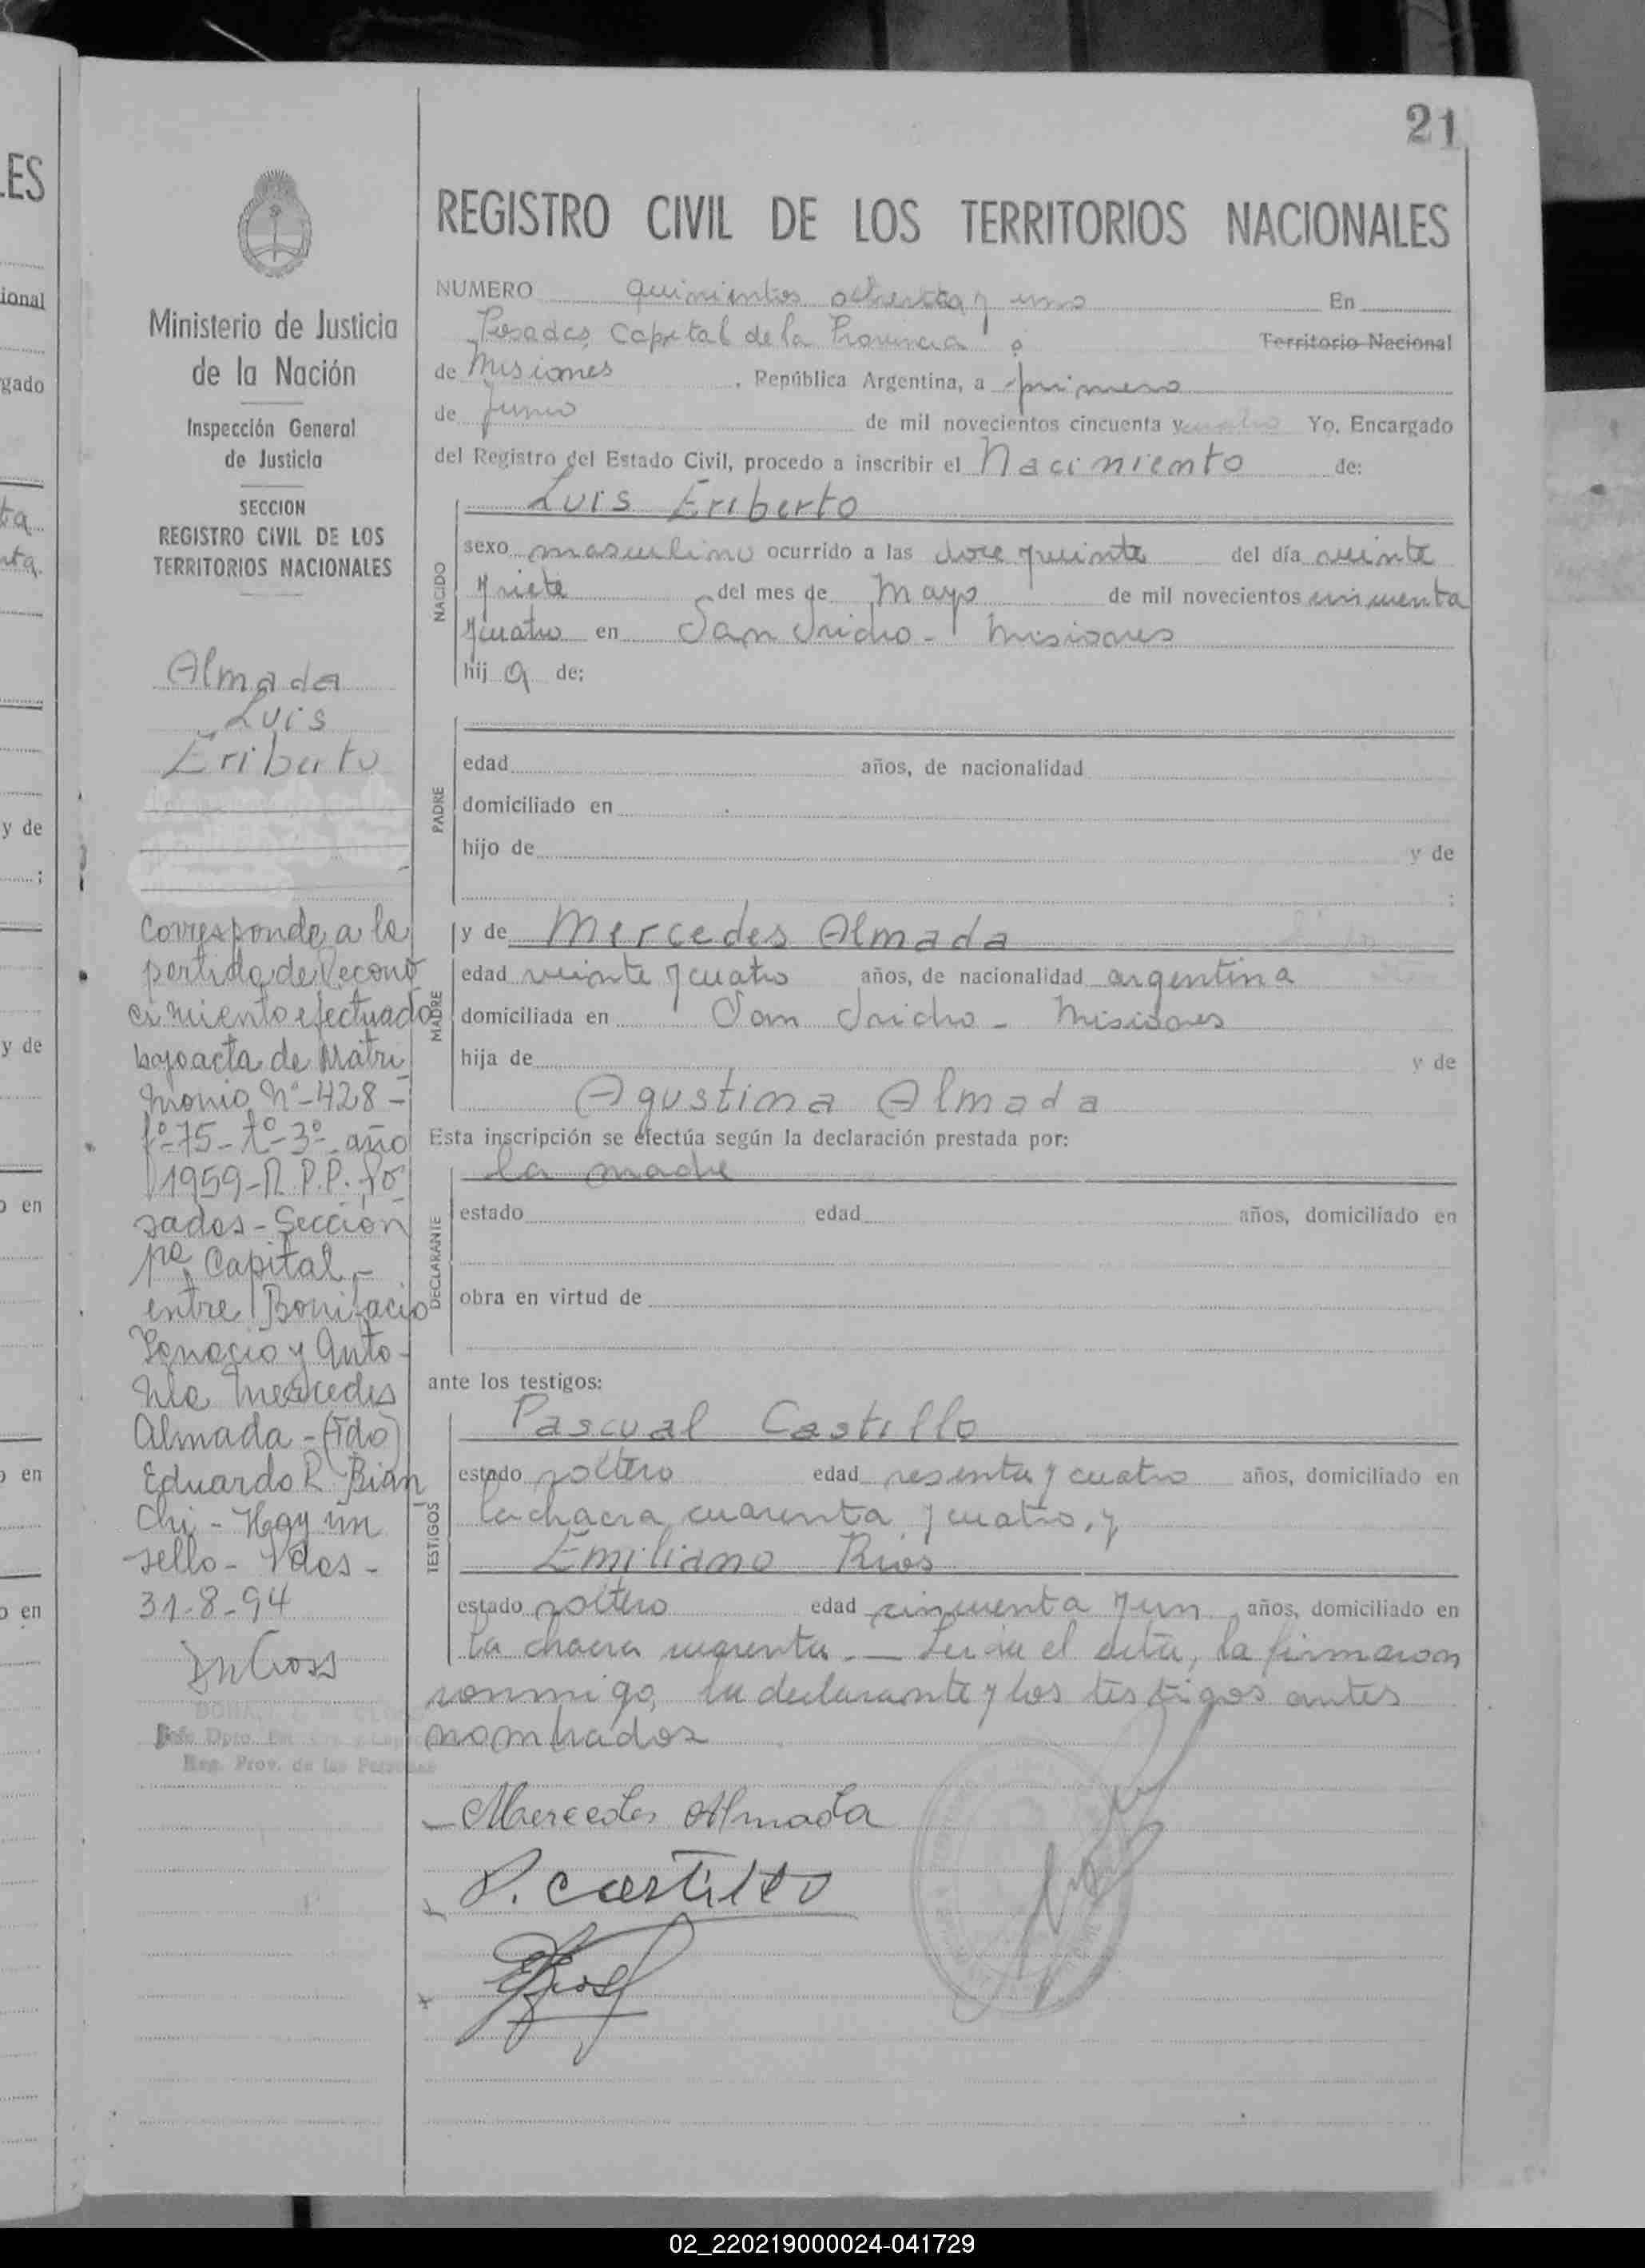 21
ES
REGISTRO CIVIL DE LOS TERRITORIOS NACIONALES
NUMERO quinientos ochenta y uno En
Posadas, Capital de la Provincia Territorio Nacional
de Misiones, República Argentina, a primero
de Junio de mil novecientos cincuenta y cuatro Yo, Encargado
del Registro del Estado Civil, procedo a inscribir el Nacimiento de:
NACIDO
Luis Eriberto
sexo masculino ocurrido a las doce y veinte del día veinte
y siete del mes de Mayo de mil novecientos cincuenta
y cuatro en San Isidro - Misiones
hij o de:
PADRE
edad años, de nacionalidad
domiciliado en
hijo de y de
:
MADRE
y de Mercedes Almada
edad veinte y cuatro años, de nacionalidad argentina
domiciliada en San Isidro - Misiones
hija de y de
Agustina Almada
Esta inscripción se efectúa según la declaración prestada por:
DECLARANTE
la madre
estado edad años, domiciliado en
obra en virtud de
ante los testigos:
TESTIGOS
Pascual Castillo
estado soltero edad sesenta y cuatro años, domiciliado en
la chacra cuarenta y cuatro, y
Emiliano Rios
estado soltero edad cincuenta y un años, domiciliado en
la chacra cuarenta. — Leída el acta, la firmaron
conmigo, la declarante y los testigos antes
nombrados
Mercedes Almada
P. Castillo
ERios
Ministerio de Justicia
de la Nación
Inspección General
de Justicia
SECCION
REGISTRO CIVIL DE LOS
TERRITORIOS NACIONALES
Almada
Luis
Eriberto
Corresponde a la
partida de Recono
cimiento efectuado
bajo acta de Matri
monio Nº-428-
fº-75-tº-3º-año
1959-R.P.P. Po
sadas - Sección
1ra Capital -
entre Bonifacio
Ignacio y Anto-
nia Mercedes
Almada - (Fdo)
Eduardo R. Bian
chi - Hay un
sello - Pdas -
31-8-94
Jefe Dpto.
Reg. Prov. de las Personas
02_220219000024-041729